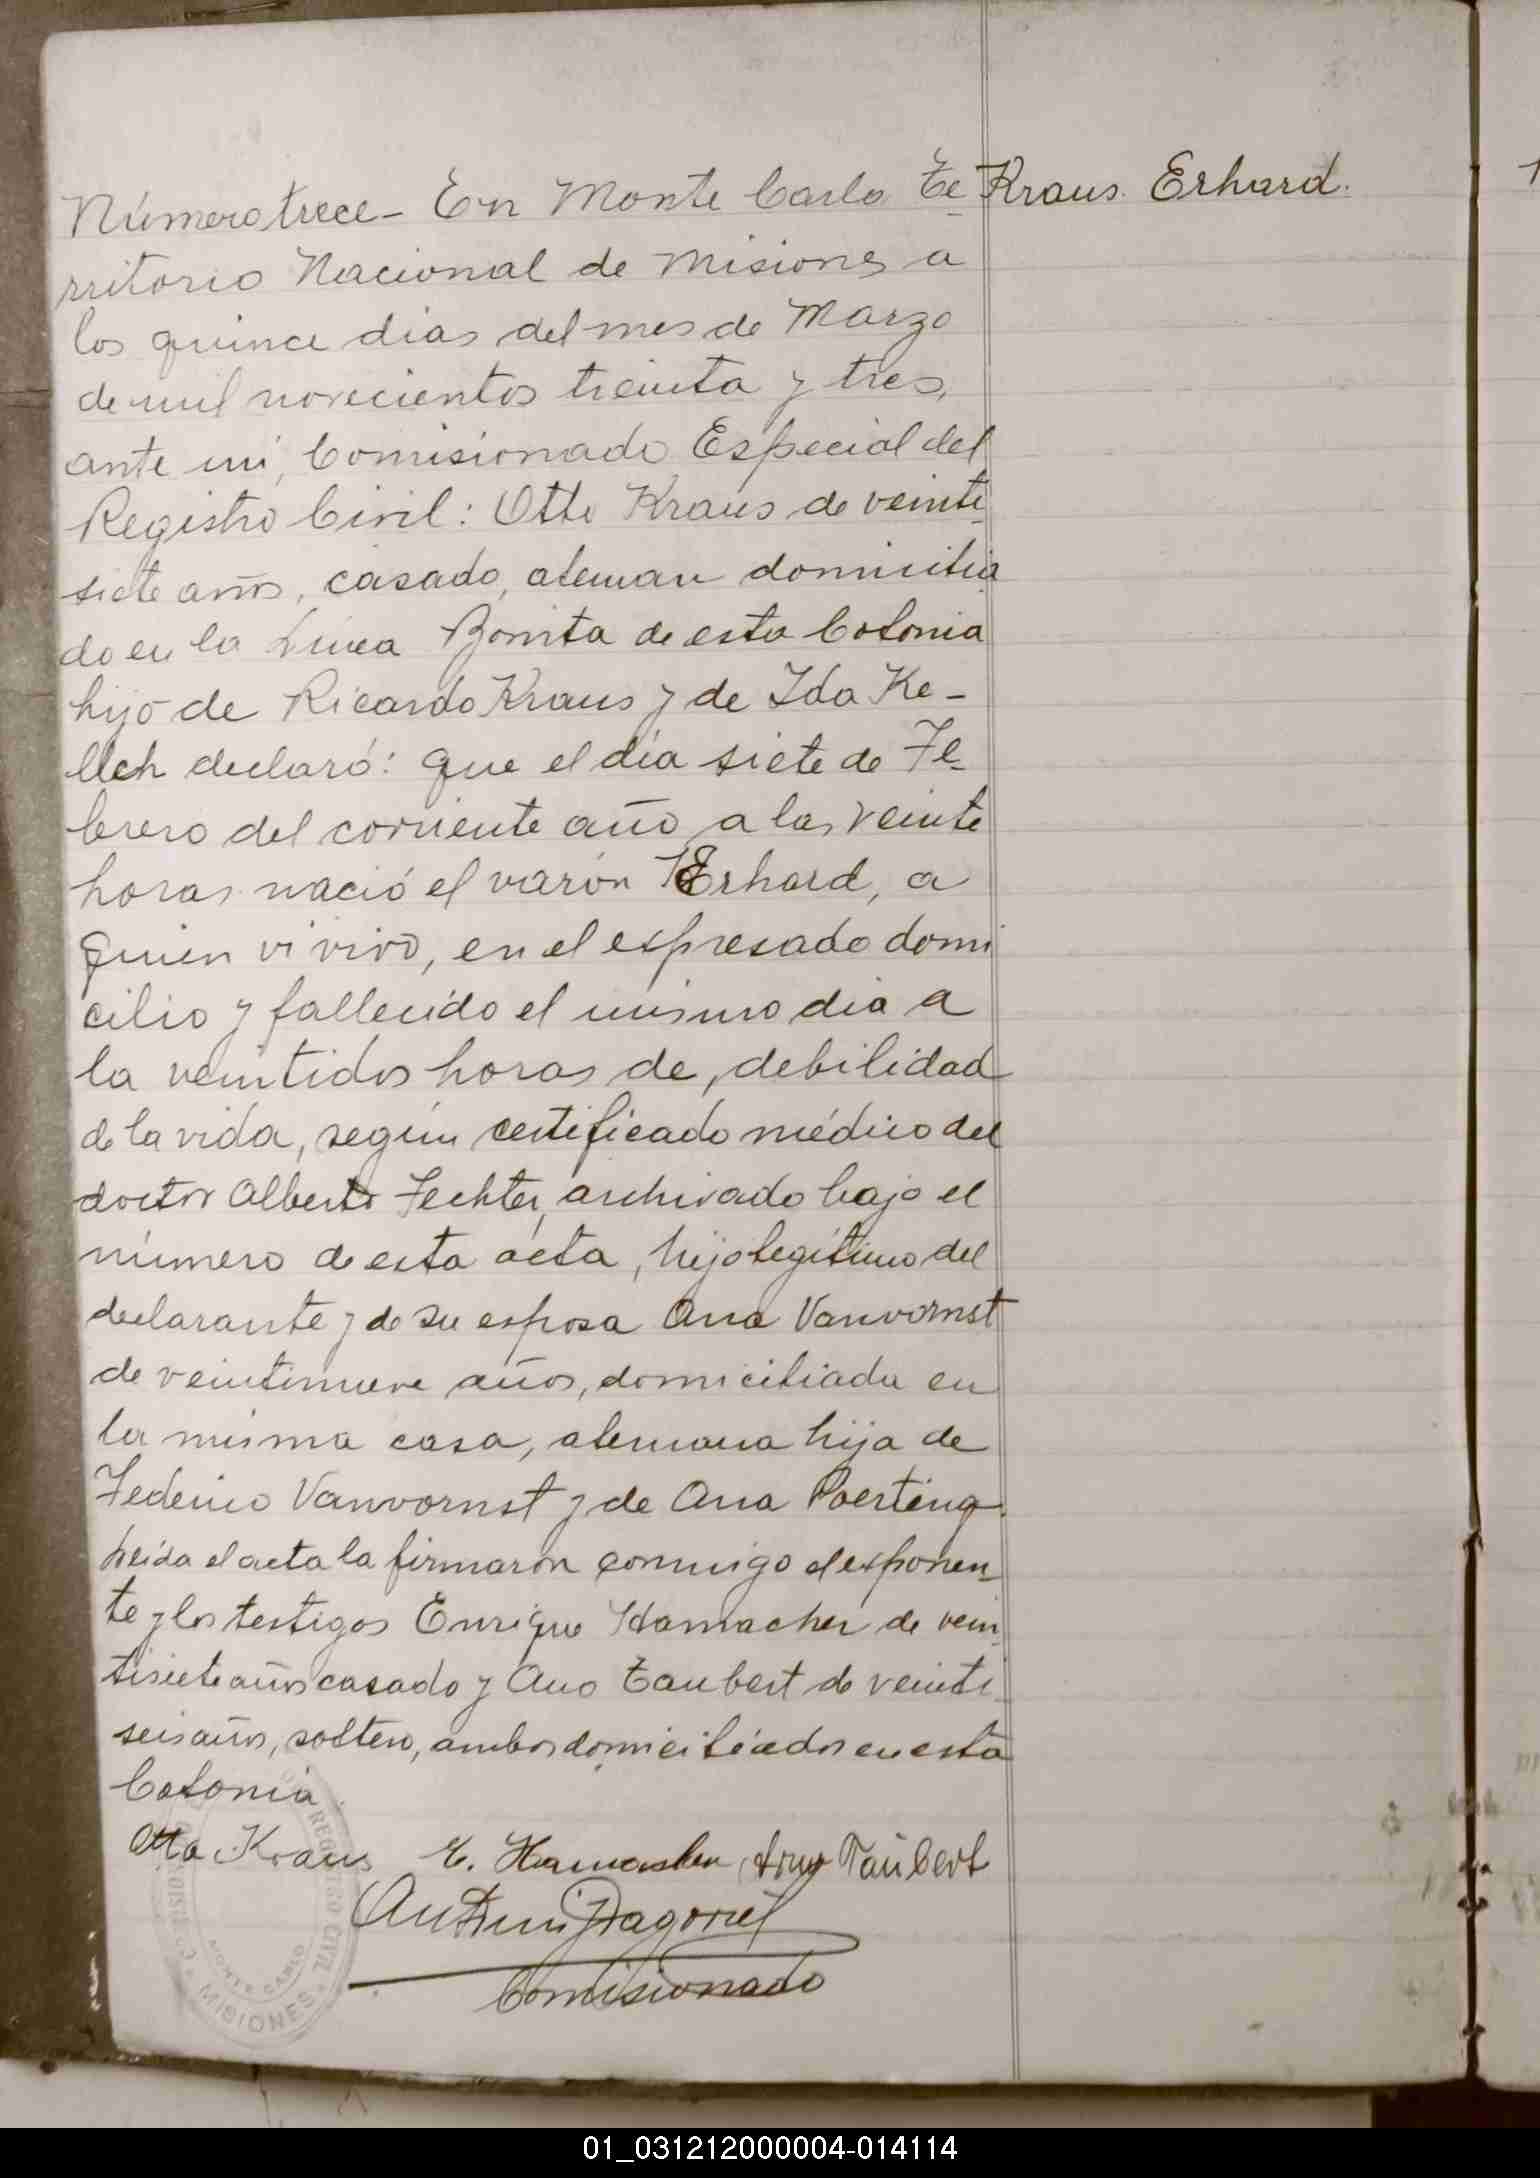 Número trece - En Monte Carlo Te
Kraus. Erhard.
rritorio Nacional de Misiones a
los quince dias del mes de Marzo
de mil novecientos treinta y tres,
ante mi, Comisionado Especial del
Registro Civil: Otto Kraus de veinti
siete años, casado, aleman domicilia
do en la Linea Bonita de esta Colonia
hijo de Ricardo Kraus y de Ida Ke-
llch declaró: que el dia siete de Fe-
brero del corriente año a las veinte
horas nació el varón Erhard, a
quien vi vivo, en el espresado domi
cilio y fallecido el mismo dia a
la veintidos horas de, debilidad
de la vida, según certificado médico del
doctor Alberto Fechter, archivado bajo el
número de esta acta, hijo legítimo del
declarante y de su esposa Ana Vanvornst
de veintinueve años, domiciliada en
la misma casa, alemana hija de
Federico Vanvornst y de Ana Poerting.
Leida el acta la firmaron conmigo el esponen-
te y los testigos Enrique Hamacher de vein
tisiete años casado y Ano Taubert de veinti
seis años, soltero, ambos domiciliados en esta
Colonia.
Otto Kraus E. Hamacher, Taubert
Comisionado
REGISTRO CIVIL
MONTE CARLO
MISIONES
01_031212000004-014114